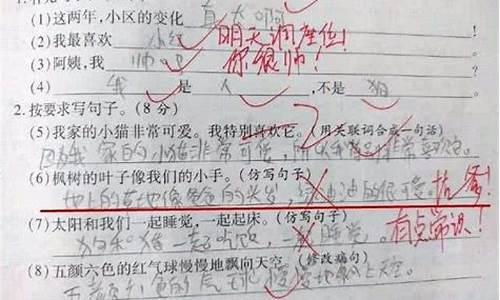 (1)这两年,小区的变化 真大啊
(2)我最喜欢 小红 明天调座位!
(3)阿姨,我 帅吗 你很帅!
(4) 我 是 人 ,不是 狗
2.按要求写句子。(8分)
(5)我家的小猫非常可爱。我特别喜欢它。(用关联词合成一句话)
因为我家的小猫非常可爱,所以我 非常喜欢它。
(6)枫树的叶子像我们的小手。(仿写句子)
地上的草地像爸爸的头发,绿油油的很可爱。 抗爹!
(7)太阳和我们一起睡觉,一起起床。(仿写句子)
狗和猪一起吃饭,一起睡觉。 有点常识!
(8)五颜六色的红气球慢慢地飘向天空。(修改病句)
五颜六色的气球慢慢地飘上天空。